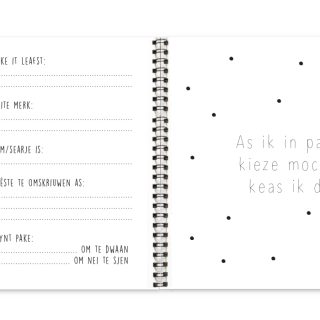 KE IT LEAFST:
ITE MERK:
M/SEARJE IS:
ÊSTE TE OMSKRIUWEN AS:
YNT PAKE:
OM TE DWAAN
OM NEI TE SJEN
As ik in pa
kieze moc
keas ik d